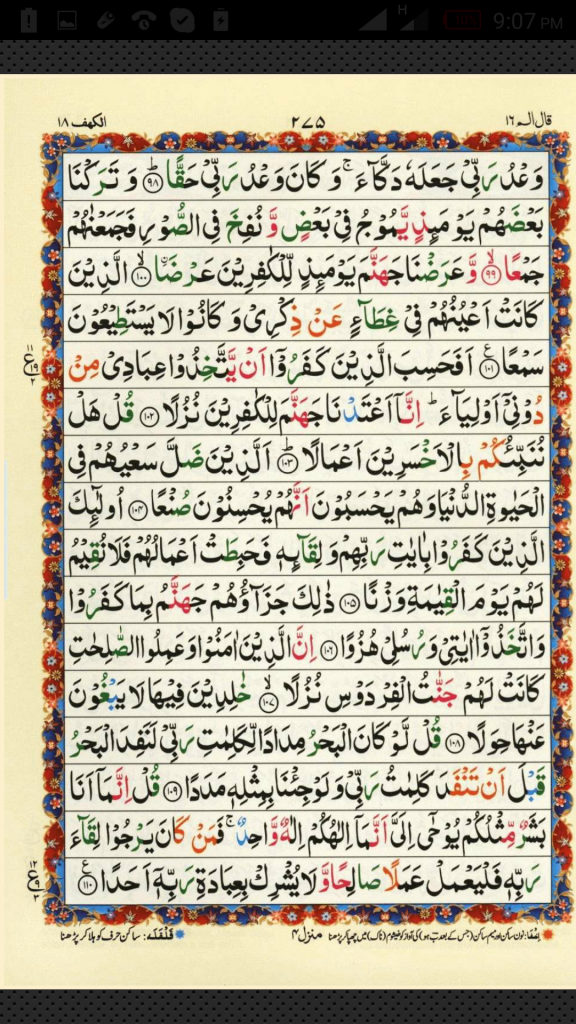 H 39% 9:07 PM
قال الم ١٦ ٢٧٥ الكهف ١٨
وَعْدُ رَبِّيْ جَعَلَهٗ دَكَّآءَ ۚ وَ كَانَ وَعْدُ رَبِّيْ حَقًّا ﴿٩٨﴾ؕ وَ تَرَكْنَا
بَعْضَهُمْ يَوْمَىِٕذٍ يَّمُوْجُ فِيْ بَعْضٍ وَّ نُفِخَ فِي الصُّوْرِ فَجَمَعْنٰهُمْ
جَمْعًا ﴿٩٩﴾ۙ وَّ عَرَضْنَا جَهَنَّمَ يَوْمَىِٕذٍ لِّلْكٰفِرِيْنَ عَرْضَا ﴿١٠٠﴾ۙ الَّذِيْنَ
كَانَتْ اَعْيُنُهُمْ فِيْ غِطَآءٍ عَنْ ذِكْرِيْ وَ كَانُوْا لَا يَسْتَطِيْعُوْنَ
سَمْعًا ﴿١٠١﴾ع اَفَحَسِبَ الَّذِيْنَ كَفَرُوْۤا اَنْ يَّتَّخِذُوْا عِبَادِيْ مِنْ
دُوْنِيْۤ اَوْلِيَآءَ ؕ اِنَّاۤ اَعْتَدْنَا جَهَنَّمَ لِلْكٰفِرِيْنَ نُزُلًا ﴿١٠٢﴾ قُلْ هَلْ
نُنَبِّئُكُمْ بِالْاَخْسَرِيْنَ اَعْمَالًا ﴿١٠٣﴾ؕ اَلَّذِيْنَ ضَلَّ سَعْيُهُمْ فِي
الْحَيٰوةِ الدُّنْيَا وَ هُمْ يَحْسَبُوْنَ اَنَّهُمْ يُحْسِنُوْنَ صُنْعًا ﴿١٠٤﴾ اُولٰٓىِٕكَ
الَّذِيْنَ كَفَرُوْا بِاٰيٰتِ رَبِّهِمْ وَ لِقَآىِٕهٖ فَحَبِطَتْ اَعْمَالُهُمْ فَلَا نُقِيْمُ
لَهُمْ يَوْمَ الْقِيٰمَةِ وَزْنًا ﴿١٠٥﴾ ذٰلِكَ جَزَآؤُهُمْ جَهَنَّمُ بِمَا كَفَرُوْا
وَ اتَّخَذُوْۤا اٰيٰتِيْ وَ رُسُلِيْ هُزُوًا ﴿١٠٦﴾ اِنَّ الَّذِيْنَ اٰمَنُوْا وَ عَمِلُوا الصّٰلِحٰتِ
كَانَتْ لَهُمْ جَنّٰتُ الْفِرْدَوْسِ نُزُلًا ﴿١٠٧﴾ۙ خٰلِدِيْنَ فِيْهَا لَا يَبْغُوْنَ
عَنْهَا حِوَلًا ﴿١٠٨﴾ قُلْ لَّوْ كَانَ الْبَحْرُ مِدَادًا لِّكَلِمٰتِ رَبِّيْ لَنَفِدَ الْبَحْرُ
قَبْلَ اَنْ تَنْفَدَ كَلِمٰتُ رَبِّيْ وَ لَوْ جِئْنَا بِمِثْلِهٖ مَدَدًا ﴿١٠٩﴾ قُلْ اِنَّمَاۤ اَنَا
بَشَرٌ مِّثْلُكُمْ يُوْحٰۤى اِلَيَّ اَنَّمَاۤ اِلٰهُكُمْ اِلٰهٌ وَّاحِدٌ ۚ فَمَنْ كَانَ يَرْجُوْا لِقَآءَ
رَبِّهٖ فَلْيَعْمَلْ عَمَلًا صَالِحًا وَّ لَا يُشْرِكْ بِعِبَادَةِ رَبِّهٖۤ اَحَدًا ﴿١١٠﴾ع
اخفا: نون ساکن اور میم ساکن (جس کے بعد ب ہو) کی آواز کو خیشوم (ناک) میں چھپا کر پڑھنا منزل ۴ قلقلہ: ساکن حرف کو ہلا کر پڑھنا